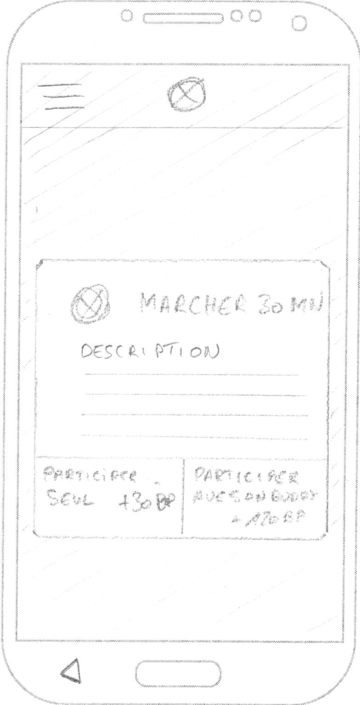 MARCHER 30 MN
DESCRIPTION
PARTICIPER
SEUL +30 BP
PARTICIPER
AVEC SON BUDDY
+ 120 BP